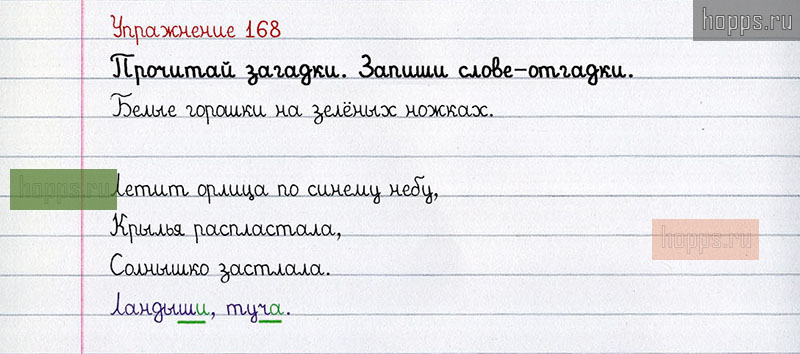 hopps.ru
Упражнение 168
Прочитай загадки. Запиши слове-отгадки.
Белые горашки на зелёных ножках.
hopps.ru
Летит орлица по синему небу,
Крылья распластала,
hopps.ru
Солнышко застлала.
Ландыши, туча.